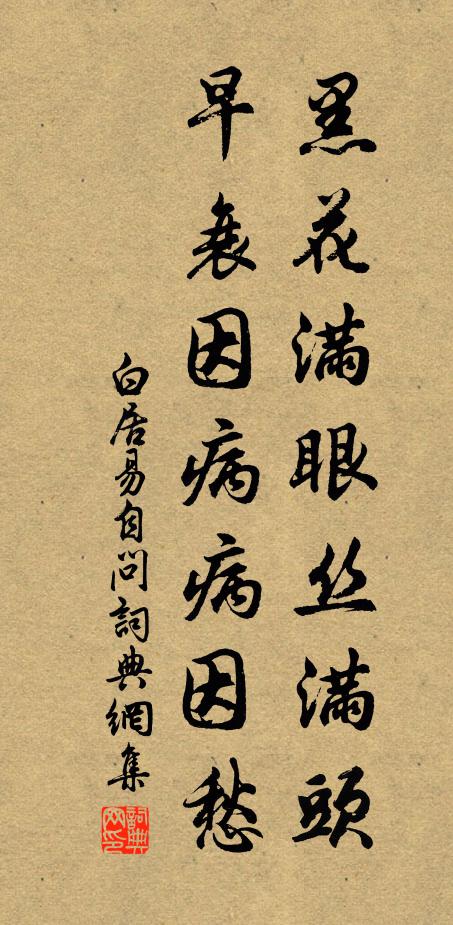 黑花满眼丝满頭
早衰因病病因愁
白居易自问詞典網集
詞典
网印